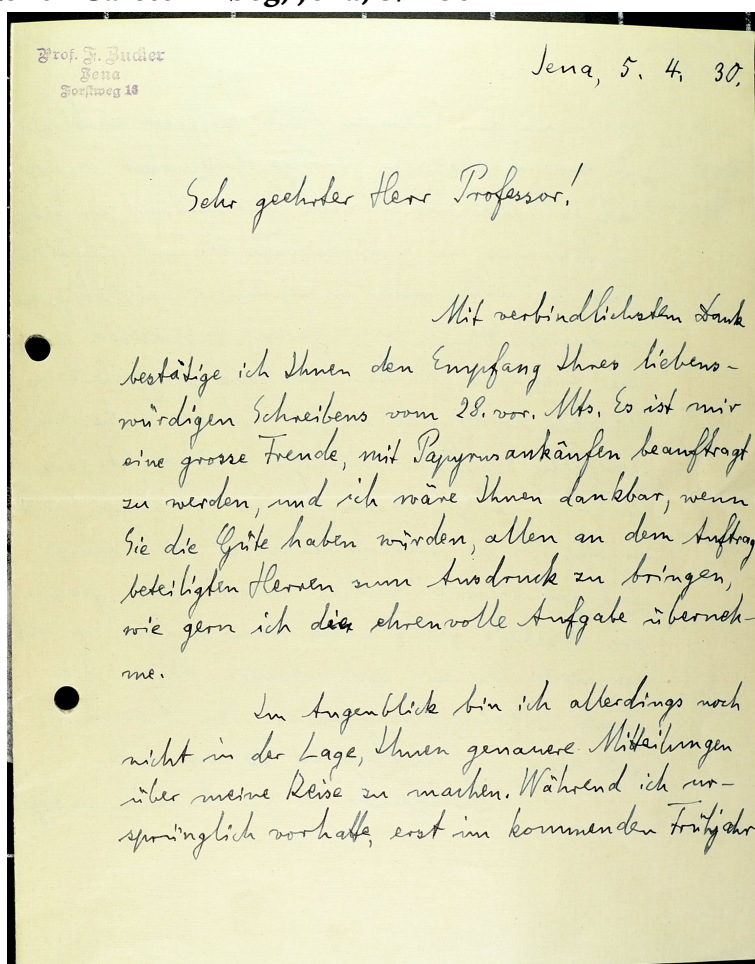 Prof. F. Zucker
Jena
Forstweg 16
Jena, 5. 4. 30.
Sehr geehrter Herr Professor!
Mit verbindlichstem Dank
bestätige ich Ihnen den Empfang Ihres liebens-
würdigen Schreibens vom 28. vor. Mts. Es ist mir
eine grosse Freude, mit Papyrusankäufen beauftragt
zu werden, und ich wäre Ihnen dankbar, wenn
Sie die Güte haben würden, allen an dem Auftrag
beteiligten Herren zum Ausdruck zu bringen,
wie gern ich die ehrenvolle Aufgabe überneh-
me.
Im Augenblick bin ich allerdings noch
nicht in der Lage, Ihnen genauere Mitteilungen
über meine Reise zu machen. Während ich ur-
sprünglich vorhatte, erst im kommenden Frühjahr